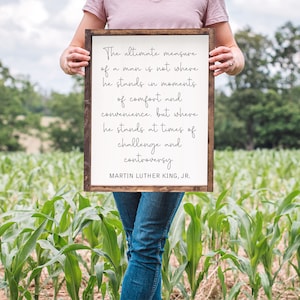 The ultimate measure
of a man is not where
he stands in moments
of comfort and
convenience, but where
he stands at times of
challenge and
controversy
MARTIN LUTHER KING, JR.